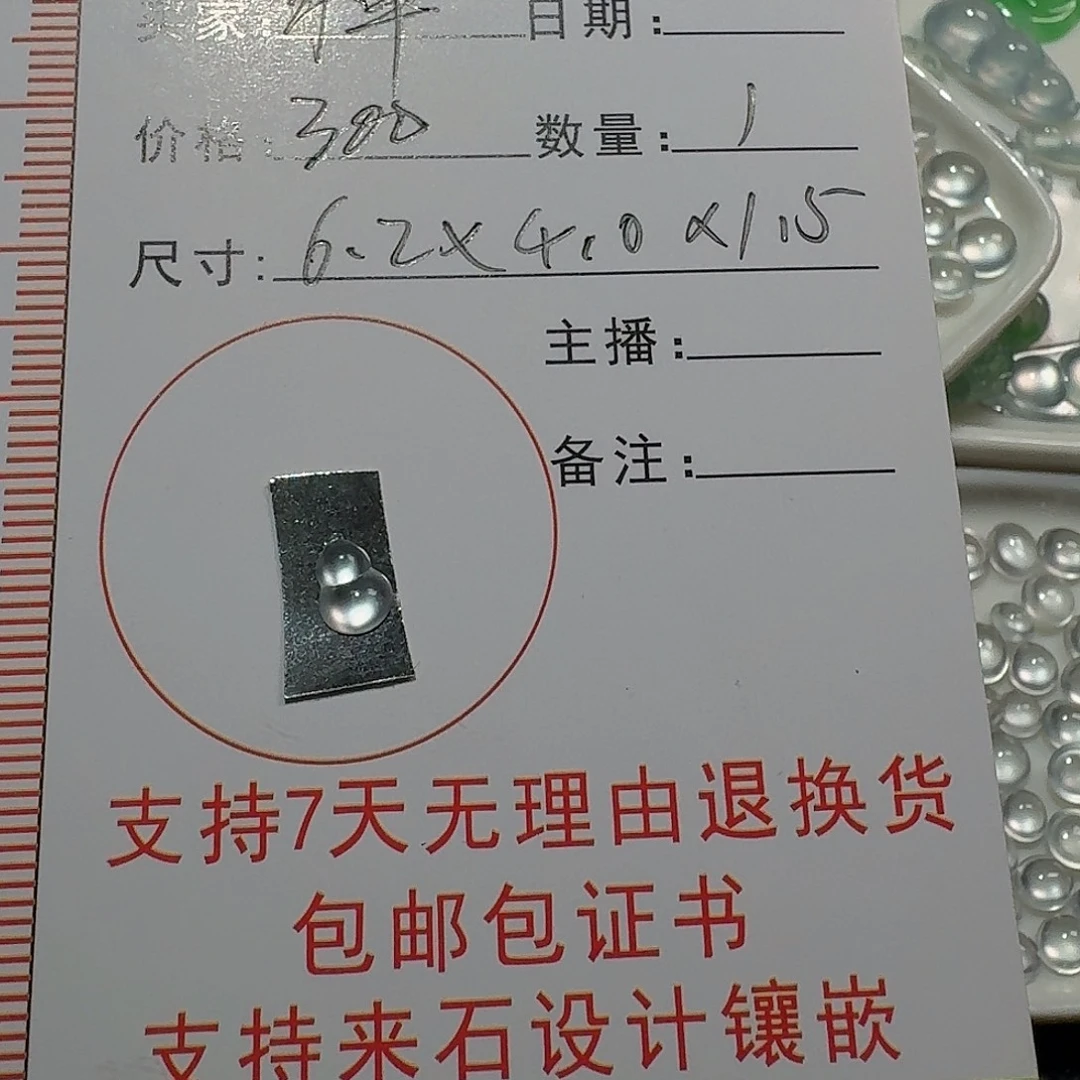 买家: 日期:
价格: 300 数量: 1
尺寸: 6.2×4.0×1.5
主播:
备注:
支持7天无理由退换货
包邮包证书
支持来石设计镶嵌